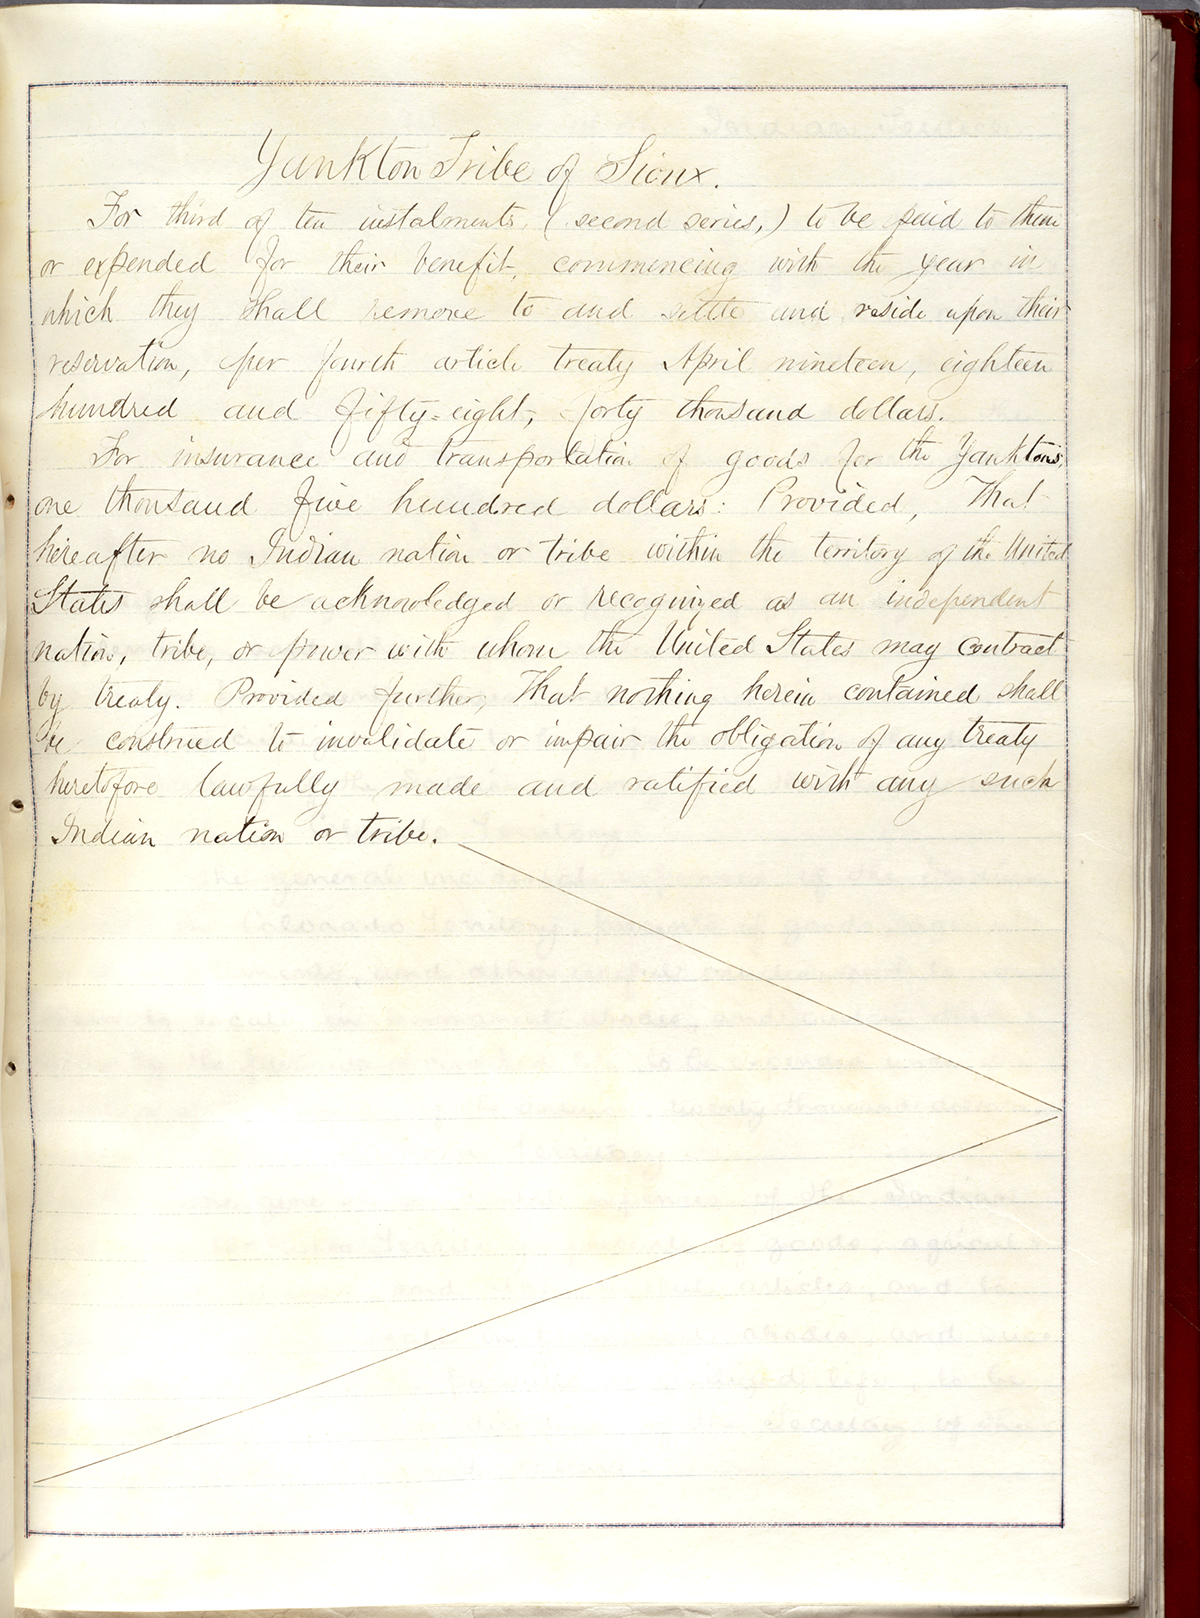 Yankton Tribe of Sioux.
For third of ten instalments, (second series,) to be paid to them
or expended for their benefit, commencing with the year in
which they shall remove to and settle and reside upon their
reservation, per fourth article treaty April nineteen, eighteen
hundred and fifty-eight, forty thousand dollars.
For insurance and transportation of goods for the Yanktons,
one thousand five hundred dollars: Provided, That
hereafter no Indian nation or tribe within the territory of the United
States shall be acknowledged or recognized as an independent
nation, tribe, or power with whom the United States may contract
by treaty. Provided further, That nothing herein contained shall
be construed to invalidate or impair the obligation of any treaty
heretofore lawfully made and ratified with any such
Indian nation or tribe.